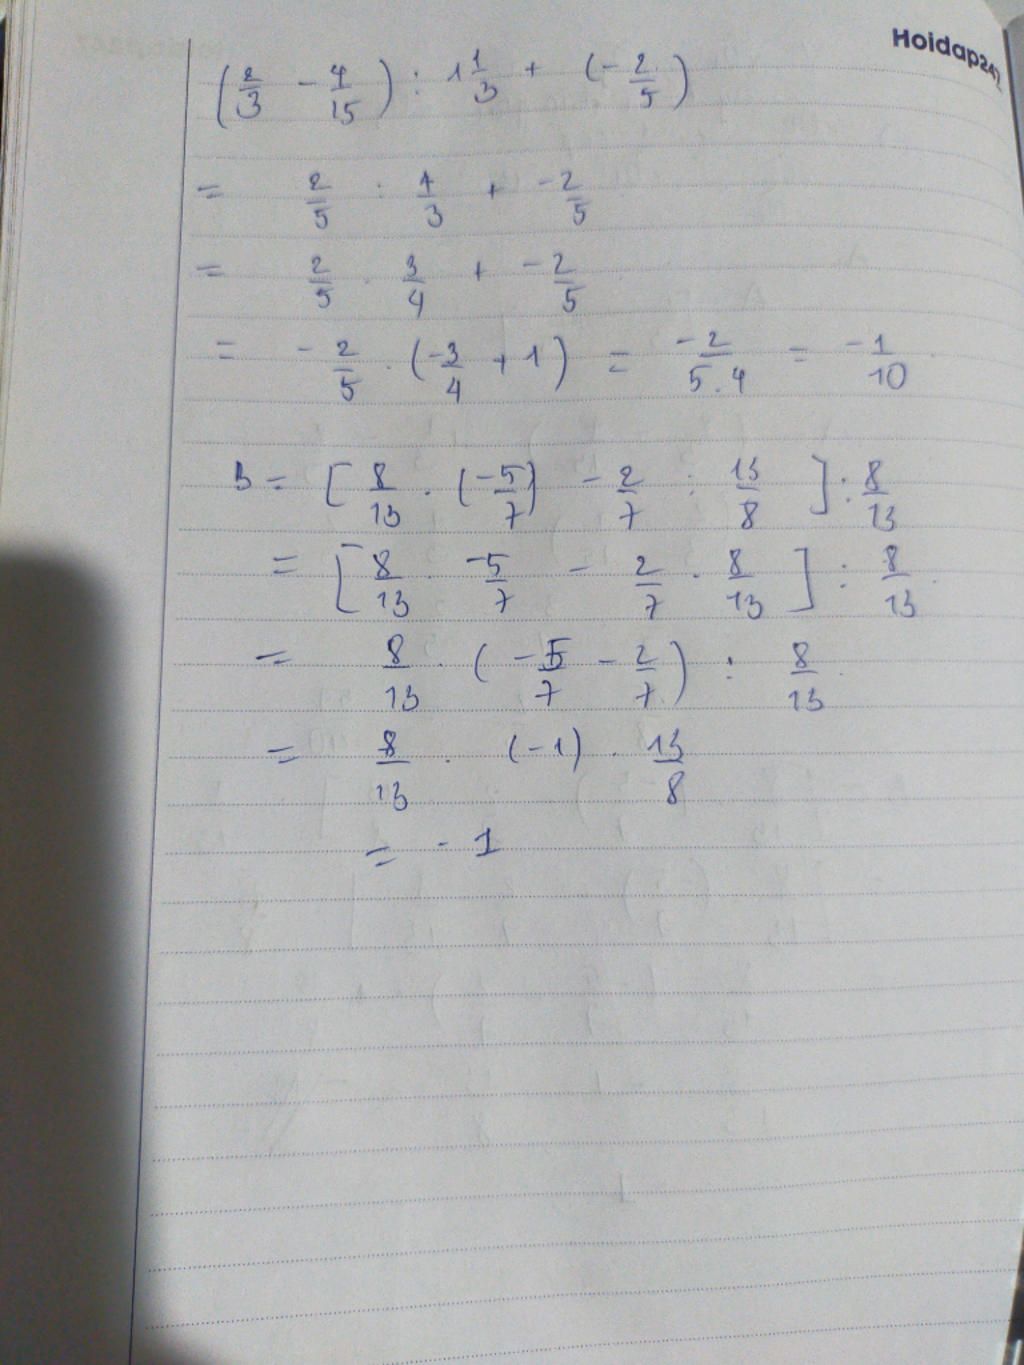 Hoidap247
(2/3 - 4/15) : 1 1/3 + (-2/5)
= 2/5 : 4/3 + -2/5
= 2/5 . 3/4 + -2/5
= -2/5 . (-3/4 + 1) = -2/5.4 = -1/10
B = [8/13 . (-5/7) - 2/7 : 13/8] : 8/13
= [8/13 . -5/7 - 2/7 . 8/13] : 8/13
= 8/13 . (-5/7 - 2/7) : 8/13
= 8/13 . (-1) . 13/8
= -1